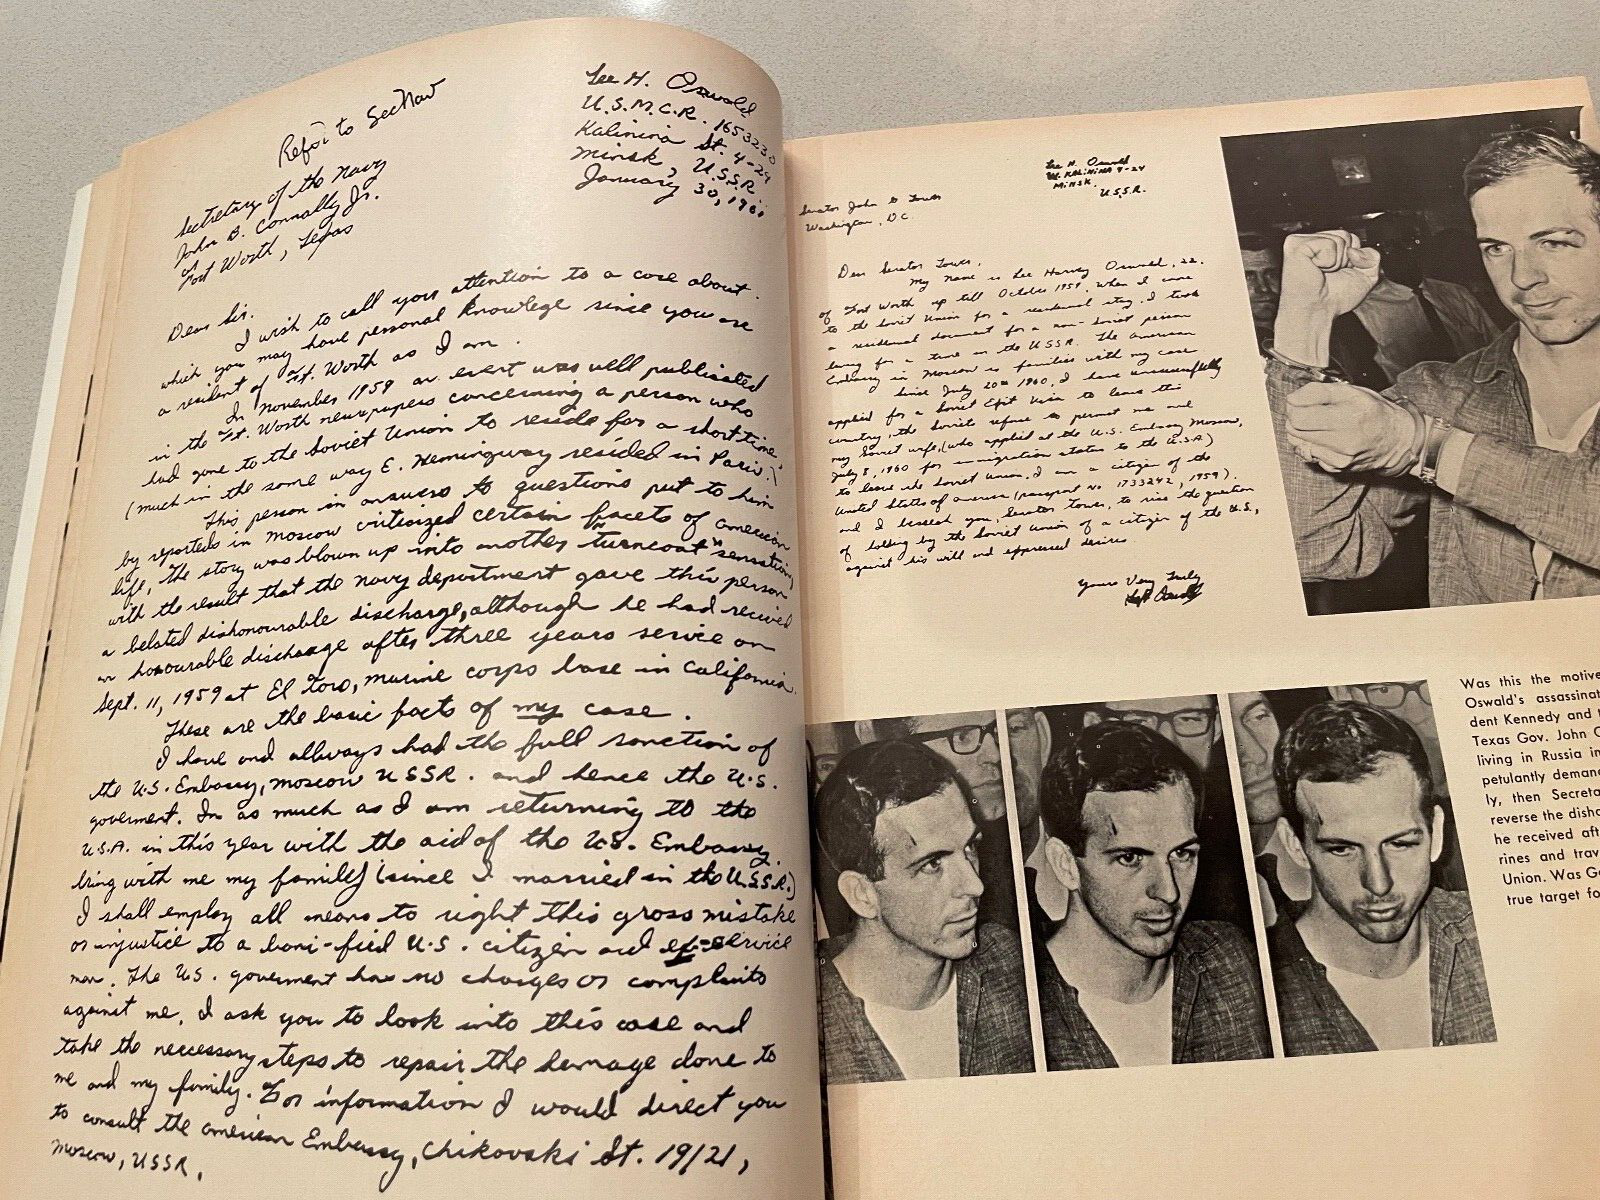 Refer to SecNav
Lee H. Oswald
U.S.M.C.R. 1653230
Kalinina St. 4-24
Minsk, U.S.S.R
January 30, 1961
Secretary of the Navy
John B. Connally Jr.
Fort Worth, Texas
Dear Sir.
I wish to call your attention to a case about
which you may have personal knowlege since you are
a resident of Ft. Worth as I am.
In November 1959 an event was well publicated
in the Ft. Worth newspapers concerning a person who
had gone to the Soviet Union to reside for a short time,
(much in the same way E. Hemingway resided in Paris.)
This person in answers to questions put to him
by reporteds in Moscow criticized certain facets of american
life, The story was blown up into another "turncoat" sensation,
with the result that the Navy department gave this person
a belated dishonourable discharge, although he had recived
an honourable discharge after three years service on
Sept. 11, 1959 at El Toro, Marine corps base in California.
These are the basic facts of my case.
I have and allways had the full sanction of
the U.S. Embassy, Moscow USSR. and hence the U.S.
goverment. In as much as I am returning to the
U.S.A. in this year with the aid of the U.S. Embassy.
bring with me my family (since I married in the U.S.S.R.)
I shall employ all means to right this gross mistake
or injustice to a boni-fied U.S. citizen and ex-service
man. The U.S. goverment has no charges or complaints
against me. I ask you to look into this case and
take the neccessary steps to repair the damage done to
me and my family. For information I would direct you
to consult the american Embassy, Chikovski St. 19/21,
Moscow, USSR.
Lee H. Oswald
KALININA 4-24
MINSK
U.S.S.R.
Senator John G Tower
Washington, D.C.
Dear Senator Tower,
My name is Lee Harvey Oswald, 22.
of Fort Worth up till October 1959. When I came
to the Soviet Union for a residenual stay. I took
a residenual document for a non-Soviet person
living for a time in the USSR. The American
Embassy in Moscow is familier with my case
Since July 20th 1960, I have unsucessfully
applied for a Soviet Exit Visa to leave this
country, the Soviets refuse to permit me and
my Soviet wife, (who applied at the U.S. Embassy Moscow,
July 8, 1960 for immigration status to the U.S.A)
to leave the Soviet Union. I am a citizen of the
United States of america (passport No. 1733242, 1959).
and I beseech you, Senator Tower, to rise the question
of holding by the Soviet Union of a citizen of the U.S.,
against his will and expressed desires.
Yours Very Truly
Oswald
Was this the motive
Oswald's assassinat
dent Kennedy and t
Texas Gov. John C
living in Russia in
petulantly deman
ly, then Secreta
reverse the disho
he received aft
rines and trav
Union. Was Go
true target fo